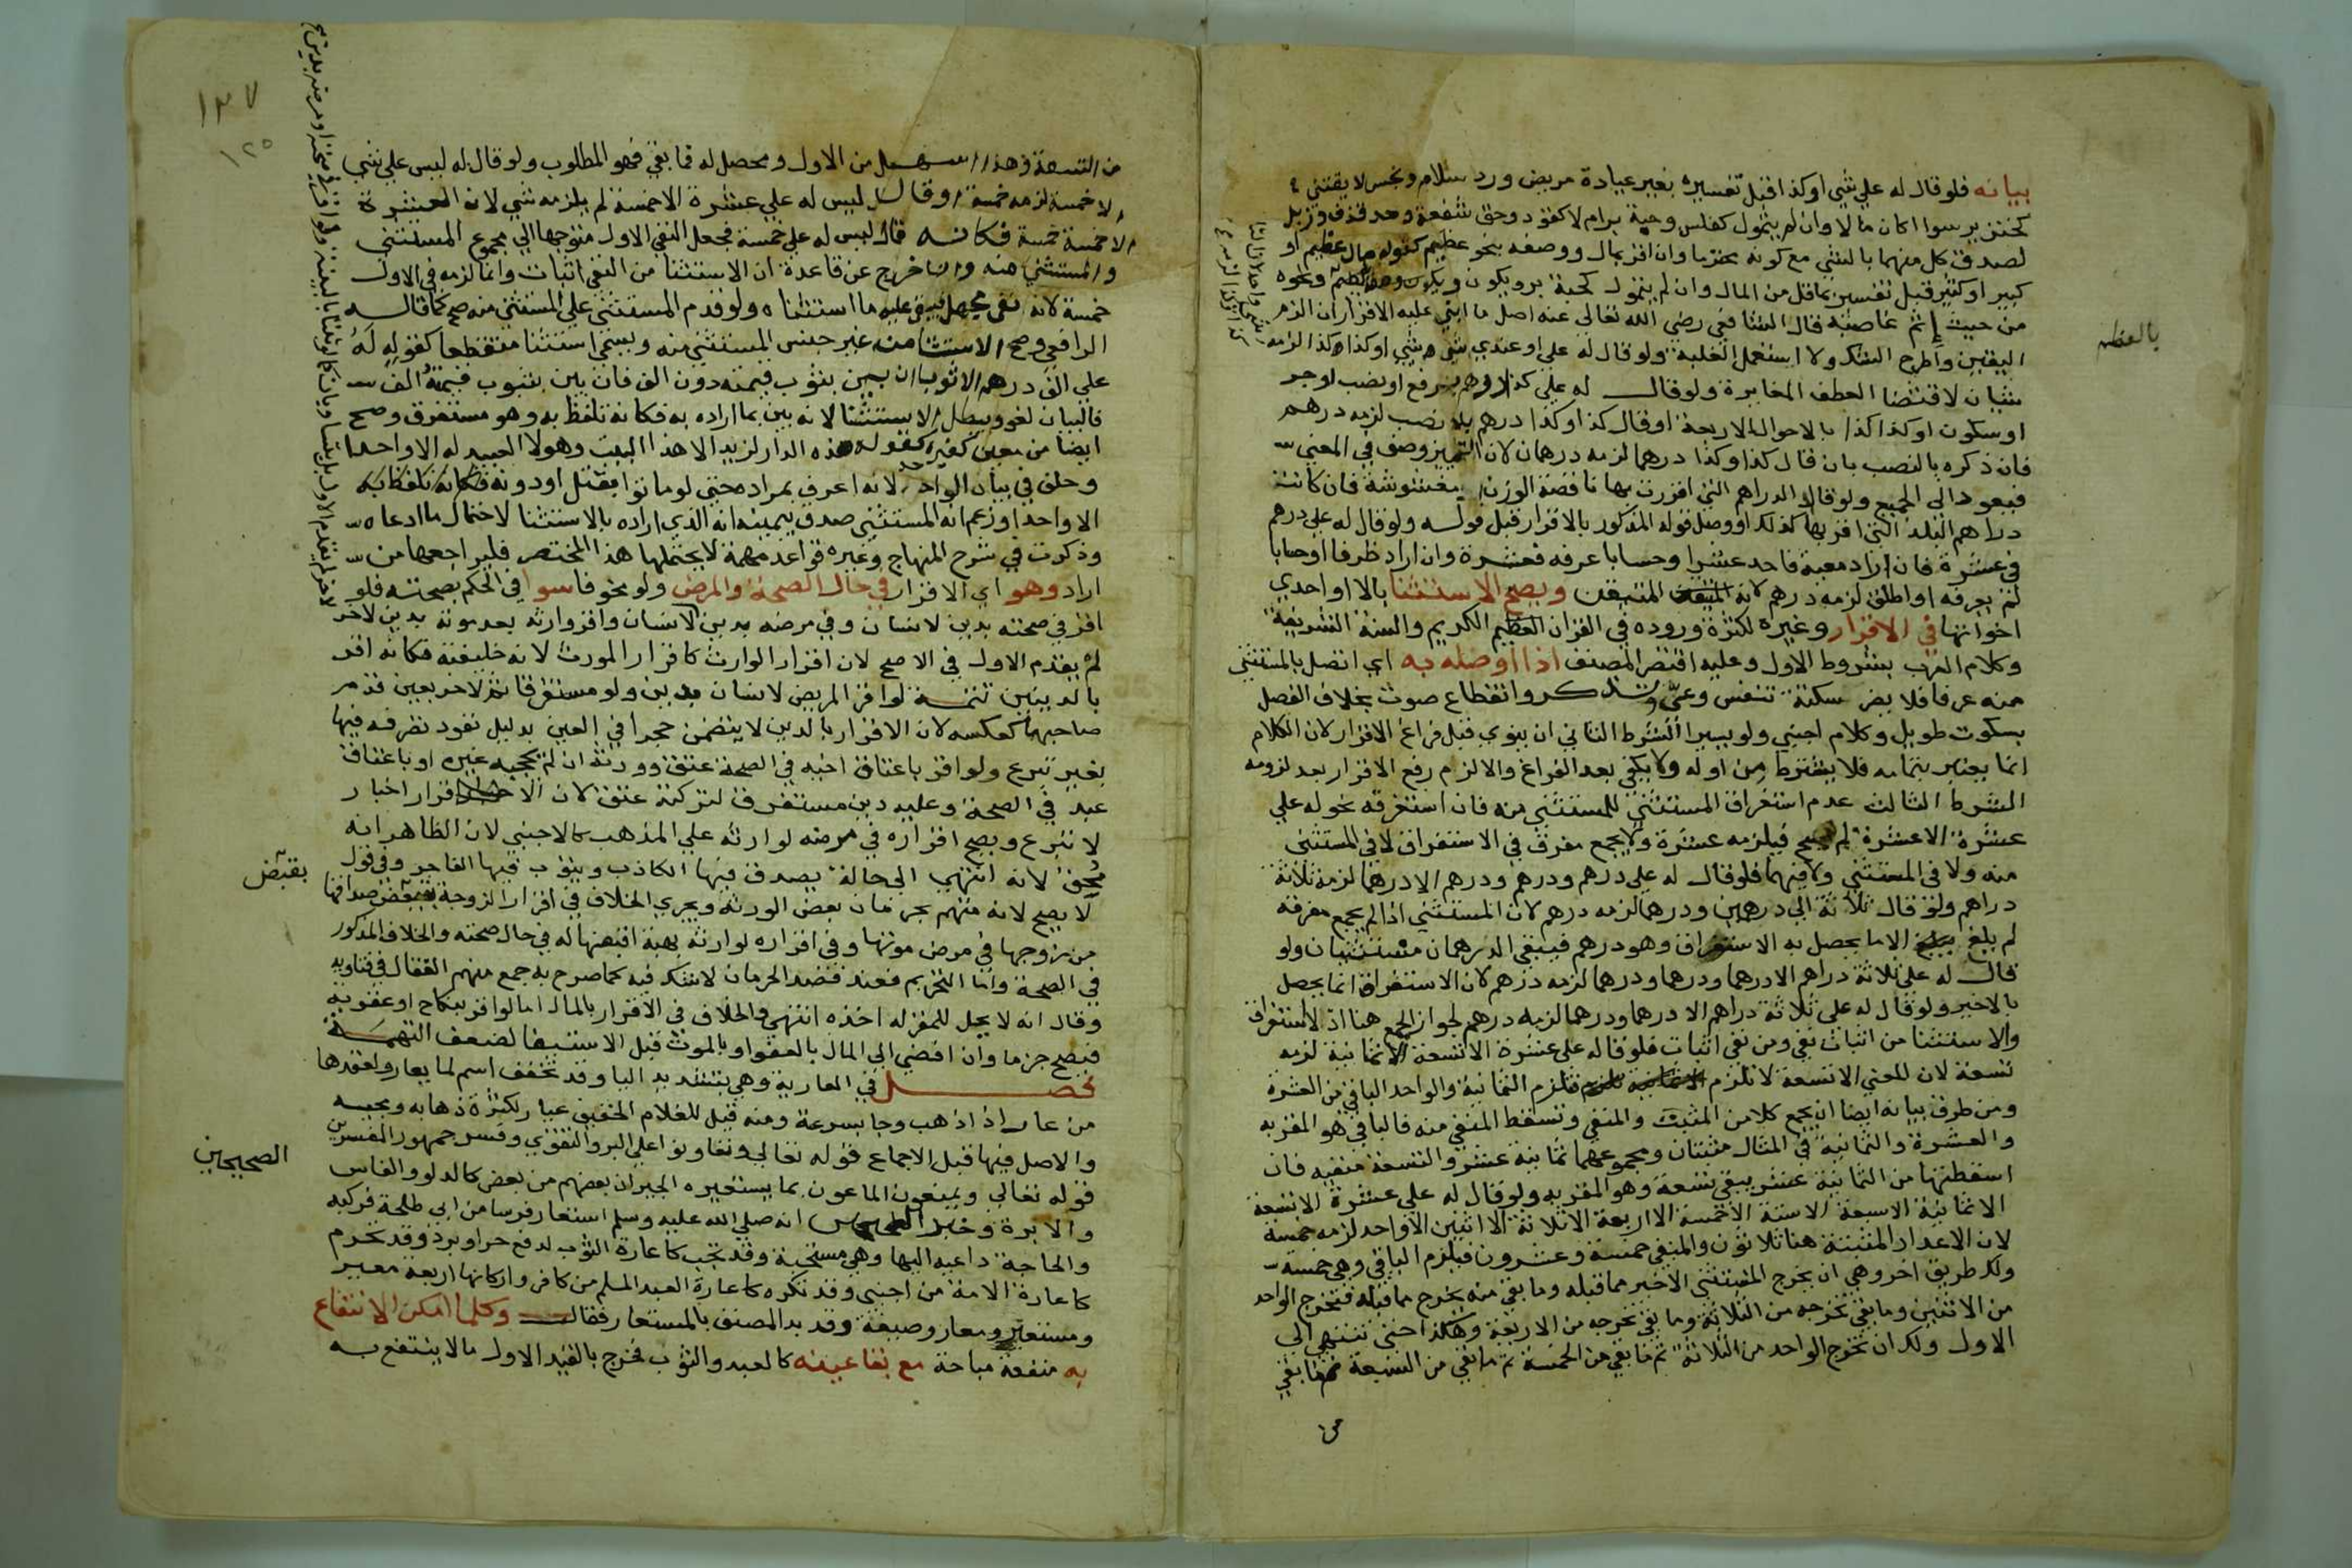 بيانه فلو قال له علي شي او كذا اقبل تفسيره بغير عيادة مريض ورد سلام ونجس لا يقتني
كخنزير سوا اكان مالا وان لم يتمول كفلس وحبة برام لا كفود وحق شفعة وحد قذف وزبل
لصدق كل منهما بالشي مع كونه محترما وان اقر بمال ووصفه بنحو عظيم كقوله مال عظيم او
كبير او كثير قبل تفسيره بما قل من المال وان لم يتمول كحبة بر ويكون وصفه بالعظم ونحوه
من حيث إثم غاصبه قال الشافعي رضي الله تعالى عنه اصل ما ابني عليه الاقرار ان الزم
اليقين واطرح الشك ولا استعمل الغلبة ولو قال له علي او عندي شي شي او كذا كذا لزمه
شيان لاقتضا العطف المغايرة ولو قال له علي كذا درهم برفع او نصب او جر
او سكون او كذا كذا بالاحوال الاربعة او قال كذا وكذا درهم بلا نصب لزمه درهم
فان ذكره بالنصب بان قال كذا وكذا درهما لزمه درهمان لان التمييز وصف في المعنى
فيعود الى الجميع ولو قال الدراهم التي اقررت بها ناقصة الوزن او مغشوشة فان كانت
دراهم البلد التي اقر بها كذلك او وصل قوله المذكور بالاقرار قبل قوله ولو قال له علي درهم
في عشرة فان اراد معية فاحد عشر او حسابا عرفه فعشرة وان اراد ظرفا او حسابا
لم يعرفه او اطلق لزمه درهم لانه المتيقن ويصح الاستثنا بالا او احدي
اخواتها في الاقرار وغيره لكثرة وروده في القران العظيم الكريم والسنة الشريفة
وكلام العرب بشروط الاول وعليه اقتصر المصنف اذا اوصله به اي اتصل بالمستثني
منه عرفا فلا يضر سكتة تنفس وعي وتذكر وانقطاع صوت بخلاف الفصل
بسكوت طويل وكلام اجنبي ولو يسيرا الشرط الثاني ان ينوي قبل فراغ الاقرار لان الكلام
انما يعتبر بتمامه فلا يشترط من اوله ولا يكفي بعد الفراغ والا لزم رفع الاقرار بعد لزومه
الشرط الثالث عدم استغراق المستثني للمستثنى منه فان استغرقه نحو له علي
عشرة الا عشرة لم يصح فيلزمه عشرة ولا يجمع مفرق في الاستغراق لا في المستثنى
منه ولا في المستثني ولا فيهما فلو قال له علي درهم ودرهم ودرهم الا درهما لزمه ثلاثة
دراهم ولو قال ثلاثة الا درهمين ودرهما لزمه درهم لان المستثني اذا لم يجمع مفرقه
لم يلغ الا ما يحصل به الاستغراق وهو درهم فيبقى الدرهمان مستثنيان ولو
قال له علي ثلاثة دراهم الا درهما ودرهما ودرهما لزمه درهم لان الاستغراق انما يحصل
بالاخير ولو قال له علي ثلاثة دراهم الا درهما ودرهما لزمه درهم لجواز الجمع هنا اذ لا استغراق
والاستثنا من اثبات نفي ومن نفي اثبات فلو قال له علي عشرة الا تسعة الا ثمانية لزمه
تسعة لان المعني الا تسعة لا تلزم الا ثمانية فتلزم الثمانية والواحد الباقي من العشرة
ومن طرق بيانه ايضا ان يجمع كلا من المثبت والمنفي وتسقط المنفي منه فالباقي هو المقر به
والعشرة والثمانية في المثال مثبتان ومجموعهما ثمانية عشر والتسعة منفية فان
اسقطتها من الثمانية عشر يبقي تسعة وهو المقر به ولو قال له علي عشرة الا تسعة
الا ثمانية الا سبعة الا ستة الا خمسة الا اربعة الا ثلاثة الا اثنين الا واحد لزمه خمسة
لان الاعداد المثبتة هنا ثلاثون والمنفي خمسة وعشرون فيلزم الباقي وهي خمسة
ولك طريق اخر وهي ان يخرج المستثني الاخير مما قبله وما بقي منه يخرج مما قبله فتخرج الواحد
من الاثنين وما بقي تخرجه من الثلاثة وما بقي تخرجه من الاربعة وهكذا حتى تنتهي الى
الاول ولك ان تخرج الواحد من الثلاثة ثم ما بقي من الخمسة ثم ما بقي من السبعة ثم ما بقي
من
بالعظم
١٣٧
١٢٥
من التسعة وهذا اسهل من الاول ومحصل له فما بقي فهو المطلوب ولو قال له ليس علي شي
الا خمسة لزمه خمسة او قال ليس له علي عشرة الا خمسة لم يلزمه شي لان العشرة
الا خمسة خمسة فكانه قال ليس له علي خمسة فجعل النفي الاول متوجها الي مجموع المستثني
والمستثني منه وان خرج عن قاعدة ان الاستثنا من النفي اثبات وانما لزمه في الاول
خمسة لانه نفي مجمل فيبقى عليه ما استثناه ولو قدم المستثني علي المستثني منه صح كما قاله
الرافعي وصح الاستثنا من غير جنس المستثني منه ويسمى استثنا منقطعا كقوله له
علي الف درهم الا ثوبا ان بين بثوب قيمته دون الف فان بين بثوب قيمته الف
فالبيان لغو ويبطل الاستثنا لانه بين بما اراده به فكانه تلفظ به وهو مستغرق وصح
ايضا من معين كغيره كقوله هذه الدار لزيد الا هذا البيت وهولا العبيد له الا واحدا
وحلف في بيان الواحد لانه اعرف بمراده حتى لو ماتوا بقتل او دونه فكانه تلفظ به
الا واحدا وزعم انه المستثني صدق بيمينه انه الذي اراده بالاستثنا لاحتمال ما ادعاه
وذكرت في شرح المنهاج وغيره قواعد مهمة لا يحتملها هذا المختصر فليراجعها من
اراد وهو اي الاقرار في حال الصحة والمرض ولو مخوفا سوا في الحكم بصحته فلو
اقر في صحته بدين لانسان وفي مرضه بدين لانسان واقر وارثه بعد موته بدين لاخر
لم يقدم الاول في الاصح لان اقرار الوارث كاقرار المورث لانه خليفته فكانه اقر
بالدينين تتمة لو اقر المريض لانسان بدين ولو مستغرقا ثم لاخر بعين قدم
صاحبها كعكسه لان الاقرار بالدين لا يتضمن حجرا في العين بدليل نفوذ تصرفه فيها
بغير تبرع ولو اقر باعتاق اخيه في الصحة عتق وورثه ان لم يحجبه غيره او باعتاق
عبد في الصحة وعليه دين مستغرق لتركته عتق لان الاقرار اخبار
لا تبرع ويصح اقراره في مرضه لوارثه علي المذهب كالاجنبي لان الظاهر انه
محق لانه انتهي الي حالة يصدق فيها الكاذب ويتوب فيها الفاجر وفي قول
لا يصح لانه متهم بحرمان بعض الورثة ويجري الخلاف في اقرار الزوجة بقبض صداقها
من زوجها في مرض موتها وفي اقراره لوارثه بهبة اقبضها له في حال صحته والخلاف المذكور
في الصحة واما التحريم فعند قصد الحرمان لا شك فيه كما صرح به جمع منهم القفال في فتاويه
وقال انه لا يحل للمقر له اخذه انتهي والخلاف في الاقرار بالمال اما لو اقر بنكاح او عقوبة
فيصح جزما وان افضي الي المال بالعفو او بالموت قبل الاستيفا لضعف التهمة
فصل في العارية وهي بتشديد اليا وقد تخفف اسم لما يعار ولعقدها
من عار اذا ذهب وجا بسرعة ومنه قيل للغلام الخفيف عيار لكثرة ذهابه ومجيئه
والاصل فيها قبل الاجماع قوله تعالي وتعاونوا علي البر والتقوي وفسر جمهور المفسرين
قوله تعالي ويمنعون الماعون بما يستعيره الجيران بعضهم من بعض كالدلو والفاس
والابرة وخبر انه صلي الله عليه وسلم استعار فرسا من ابي طلحة فركبه
والحاجة داعية اليها وهي مستحبة وقد تجب كاعارة الثوب لدفع حر او برد وقد تحرم
كاعارة الامة من اجنبي وقد تكره كاعارة العبد المسلم من كافر واركانها اربعة معير
ومستعير ومعار وصيغة وقد بدا المصنف بالمستعار فقال وكلما امكن الانتفاع
به منفعة مباحة مع بقا عينه كالعبد والثوب فخرج بالقيد الاول ما لا ينتفع به
بقبض
الصحيحين